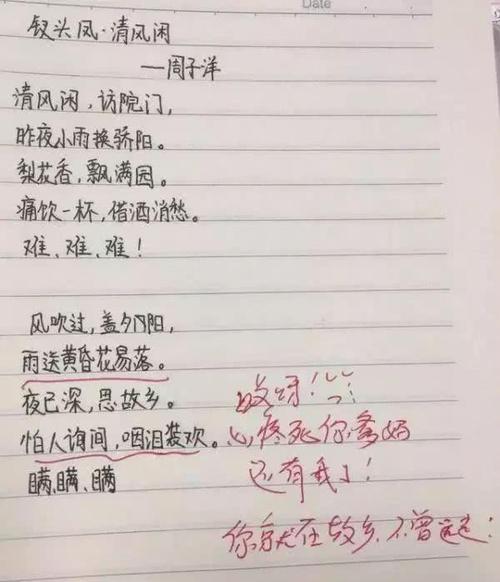 Date
钗头凤·清风闲
——周子洋
清风闲，访院门，
昨夜小雨换骄阳。
梨花香，飘满园。
痛饮一杯，借酒消愁。
难、难、难！
风吹过，盖夕阳，
雨送黄昏花易落。
夜已深，思故乡。
怕人询问，咽泪装欢。
瞒、瞒、瞒
哎呀！
心疼死你爹妈
还有我了！
你就在故乡，不曾远走！